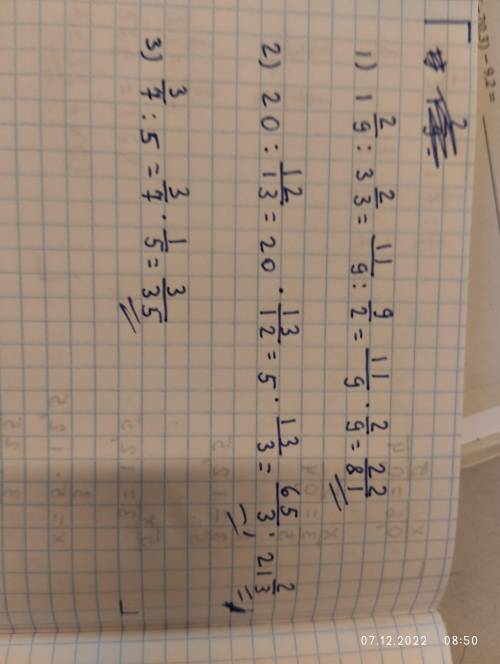 1) 1 2/9 : 3 2/3 = 11/9 : 9/2 = 11/9 · 2/9 = 22/81
2) 20 : 12/13 = 20 · 13/12 = 5 · 13/3 = 65/3 ; 21 2/3
3) 3/7 : 5 = 3/7 · 1/5 = 3/35
07.12.2022 08:50